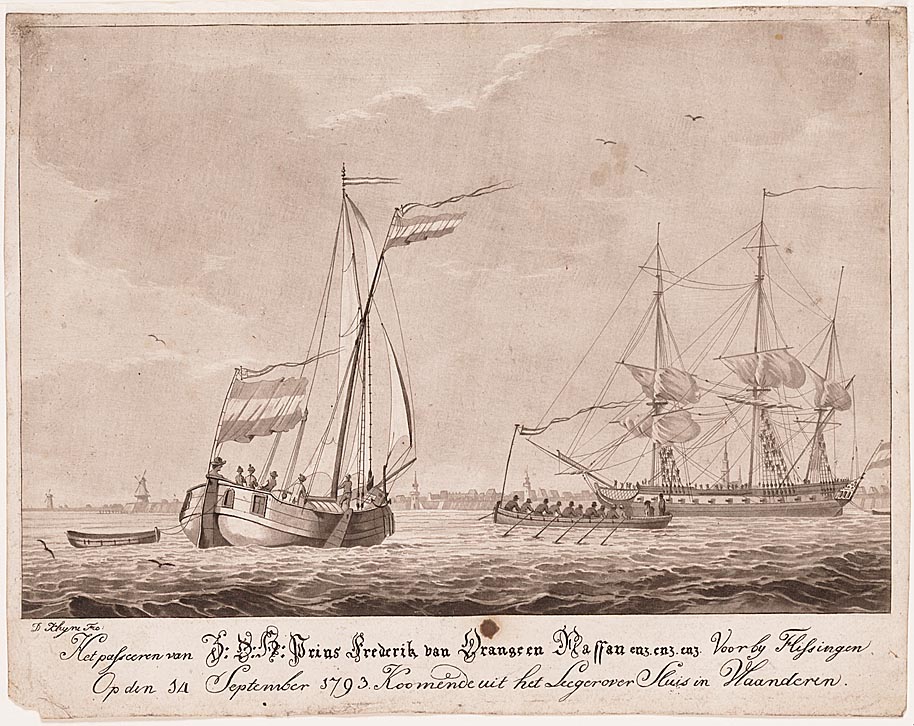 D Khyne Fec:
Het passeeren van Z: D: H: Prins Frederik van Orange en Nassau enz. enz. enz. Voor by Flissingen
Op den 14 September 1793. Koomende uit het Leeger over Sluis in Vlaanderen.